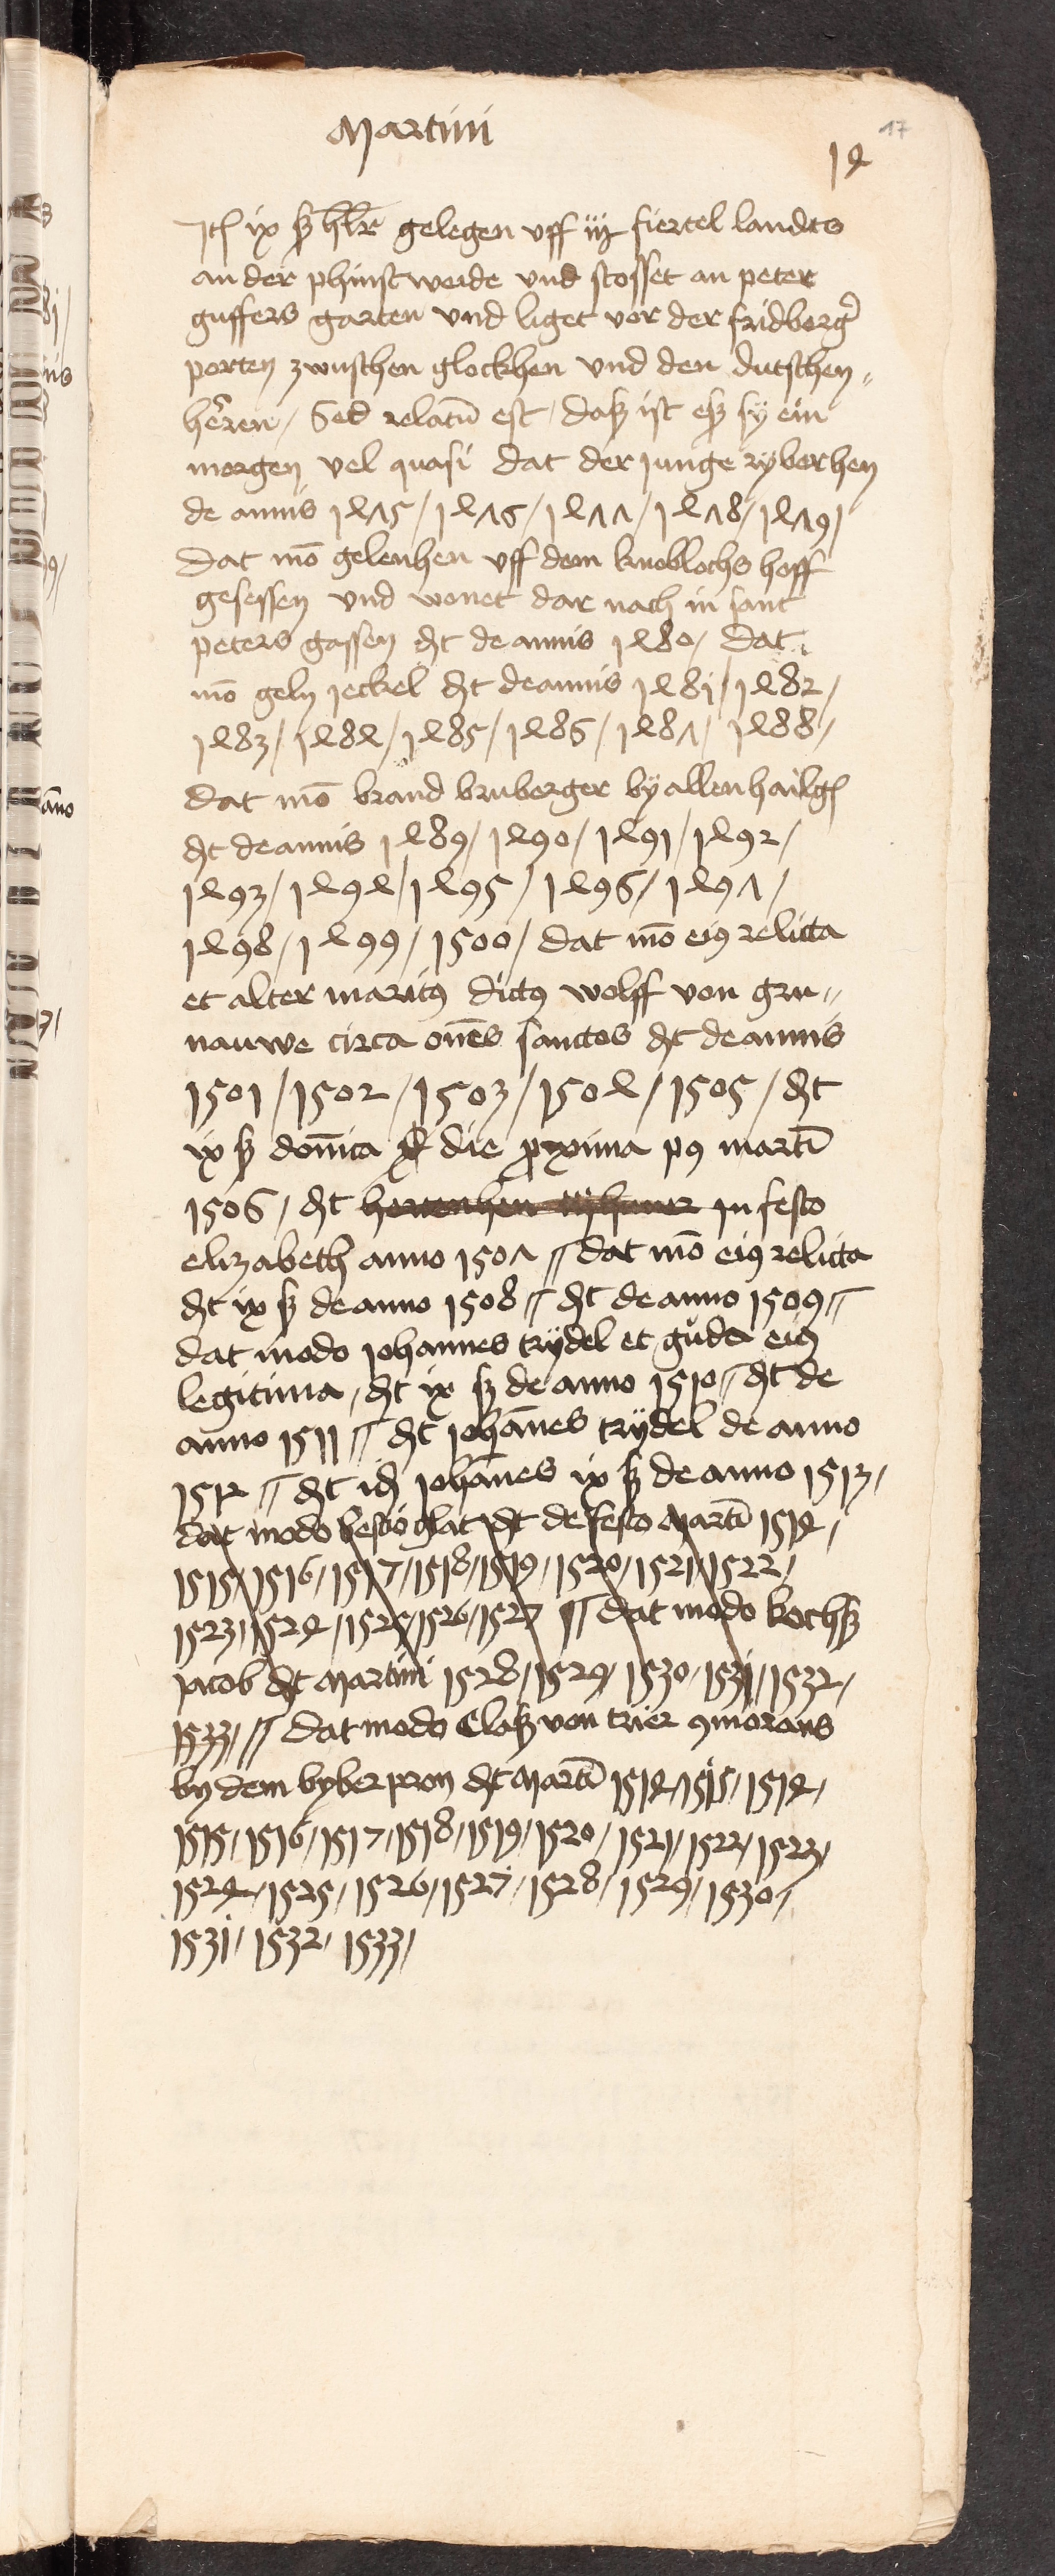 Martini
17
14
Itē ix ß hlr̄ gelegen vff iij fiertel landts
an der phinstweide vnd stosset an peter
guffers garten vnd liget vor der fridberg̃
porten zwuschen glockhen vnd den dutschen„
heren / Sed relatū est / daß ist eß sÿ ein
morgen vel quasi dat der junge ryberhen
de annis 1475 / 1476 / 1477 / 1478 / 1479 /
Dat mō gelenhen vff dem knoblochs hoff
gesessen vnd wonet dar nach in sant
peters gassen dt de annis 1480 / dat
mō geln jeckel dt de annis 1481 / 1482 /
1483 / 1484 / 1485 / 1486 / 1487 / 1488 /
dat mō brand bruberger bÿ allenhailgē
dt de annis 1489 / 1490 / 1491 / 1492 /
1493 / 1494 / 1495 / 1496 / 1497 /
1498 / 1499 / 1500 / dat mō eiꝯ relicta
et alter maritꝯ dictꝯ wolff von gru„
nauwe circa om̄es sanctos dt de annis
1501 / 1502 / 1503 / 1504 / 1505 / dt
ix ß domīca die proxima pꝯ martī
1506 / dt in festo
elizabeth anno 1507 // dat mō eiꝯ relicta
dt ix ß de anno 1508 // dt de anno 1509 //
dat modo johannes trÿdel et guda eiꝯ
legitima / dt ix ß de anno 1510 // dt de
anno 1511 // dt johānes trÿdel de anno
1512 // dt idē johānes ix ß de anno 1513 /
dat modo glat dt de festo Martī 1514 /
1515 / 1516 / 1517 / 1518 / 1519 / 1520 / 1521 / 1522 /
1523 / 1524 / 1525 / 1526 / 1527 // dat modo kochß
jacob dt Martini 1528 / 1529 / 1530 / 1531 / 1532 /
1533 / // dat modo Claß von trier ꝯmorans
by dem byber pron dt Martī 1514 / 1515 / 1514 /
1515 / 1516 / 1517 / 1518 / 1519 / 1520 / 1521 / 1522 / 1523 /
1524 / 1525 / 1526 / 1527 / 1528 / 1529 / 1530 /
1531 / 1532 / 1533 /